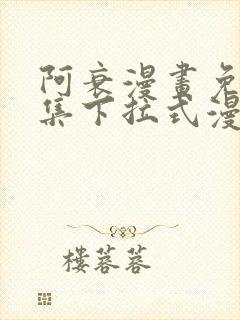 阿衰漫畫免
集下拉式漫
樓蓉蓉